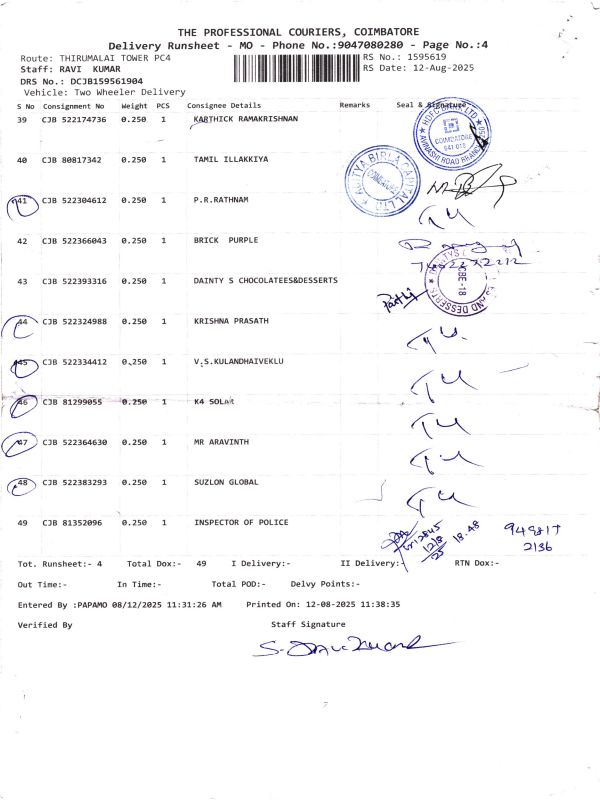 THE PROFESSIONAL COURIERS, COIMBATORE
Delivery Runsheet - MO - Phone No.:9047080280 - Page No.:4
Route: THIRUMALAI TOWER PC4 RS No.: 1595619
Staff: RAVI KUMAR RS Date: 12-Aug-2025
DRS No.: DCJB159561904
Vehicle: Two Wheeler Delivery
S No Consignment No Weight PCS Consignee Details Remarks Seal & Signature
39 CJB 522174736 0.250 1 KARTHICK RAMAKRISHNAN
HDFC LTD
COIMBATORE
641 018
AVINASHI ROAD
40 CJB 80817342 0.250 1 TAMIL ILLAKKIYA
ADITYA BIRLA CAPITAL LTD
COIMBATORE
41 CJB 522304612 0.250 1 P.R.RATHNAM
42 CJB 522366043 0.250 1 BRICK PURPLE
43 CJB 522393316 0.250 1 DAINTY S CHOCOLATEES&DESSERTS
CBE-18
AND DESSERTS
44 CJB 522324988 0.250 1 KRISHNA PRASATH
45 CJB 522334412 0.250 1 V.S.KULANDHAIVEKLU
46 CJB 81299055 0.250 1 K4 SOLAR
47 CJB 522364630 0.250 1 MR ARAVINTH
48 CJB 522383293 0.250 1 SUZLON GLOBAL
49 CJB 81352096 0.250 1 INSPECTOR OF POLICE
12/8/25
18.48
949817
2136
Tot. Runsheet:- 4 Total Dox:- 49 I Delivery:- II Delivery:- RTN Dox:-
Out Time:- In Time:- Total POD:- Delvy Points:-
Entered By :PAPAMO 08/12/2025 11:31:26 AM Printed On: 12-08-2025 11:38:35
Verified By Staff Signature